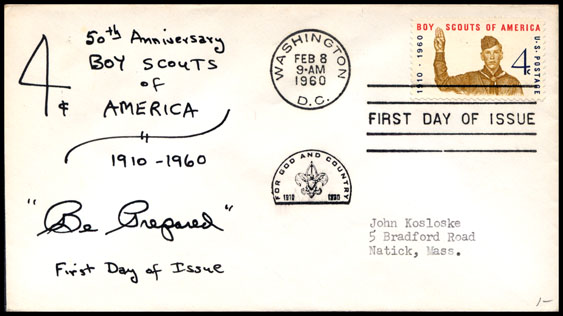 4¢
50th Anniversary
BOY SCOUTS
OF
AMERICA
1910-1960
"Be Prepared"
First Day of Issue
WASHINGTON
FEB 8
9-AM
1960
D.C.
FOR GOD AND COUNTRY
1910 1960
BOY SCOUTS OF AMERICA
1910-1960
4¢
U.S. POSTAGE
FIRST DAY OF ISSUE
John Kosloske
5 Bradford Road
Natick, Mass.
1-